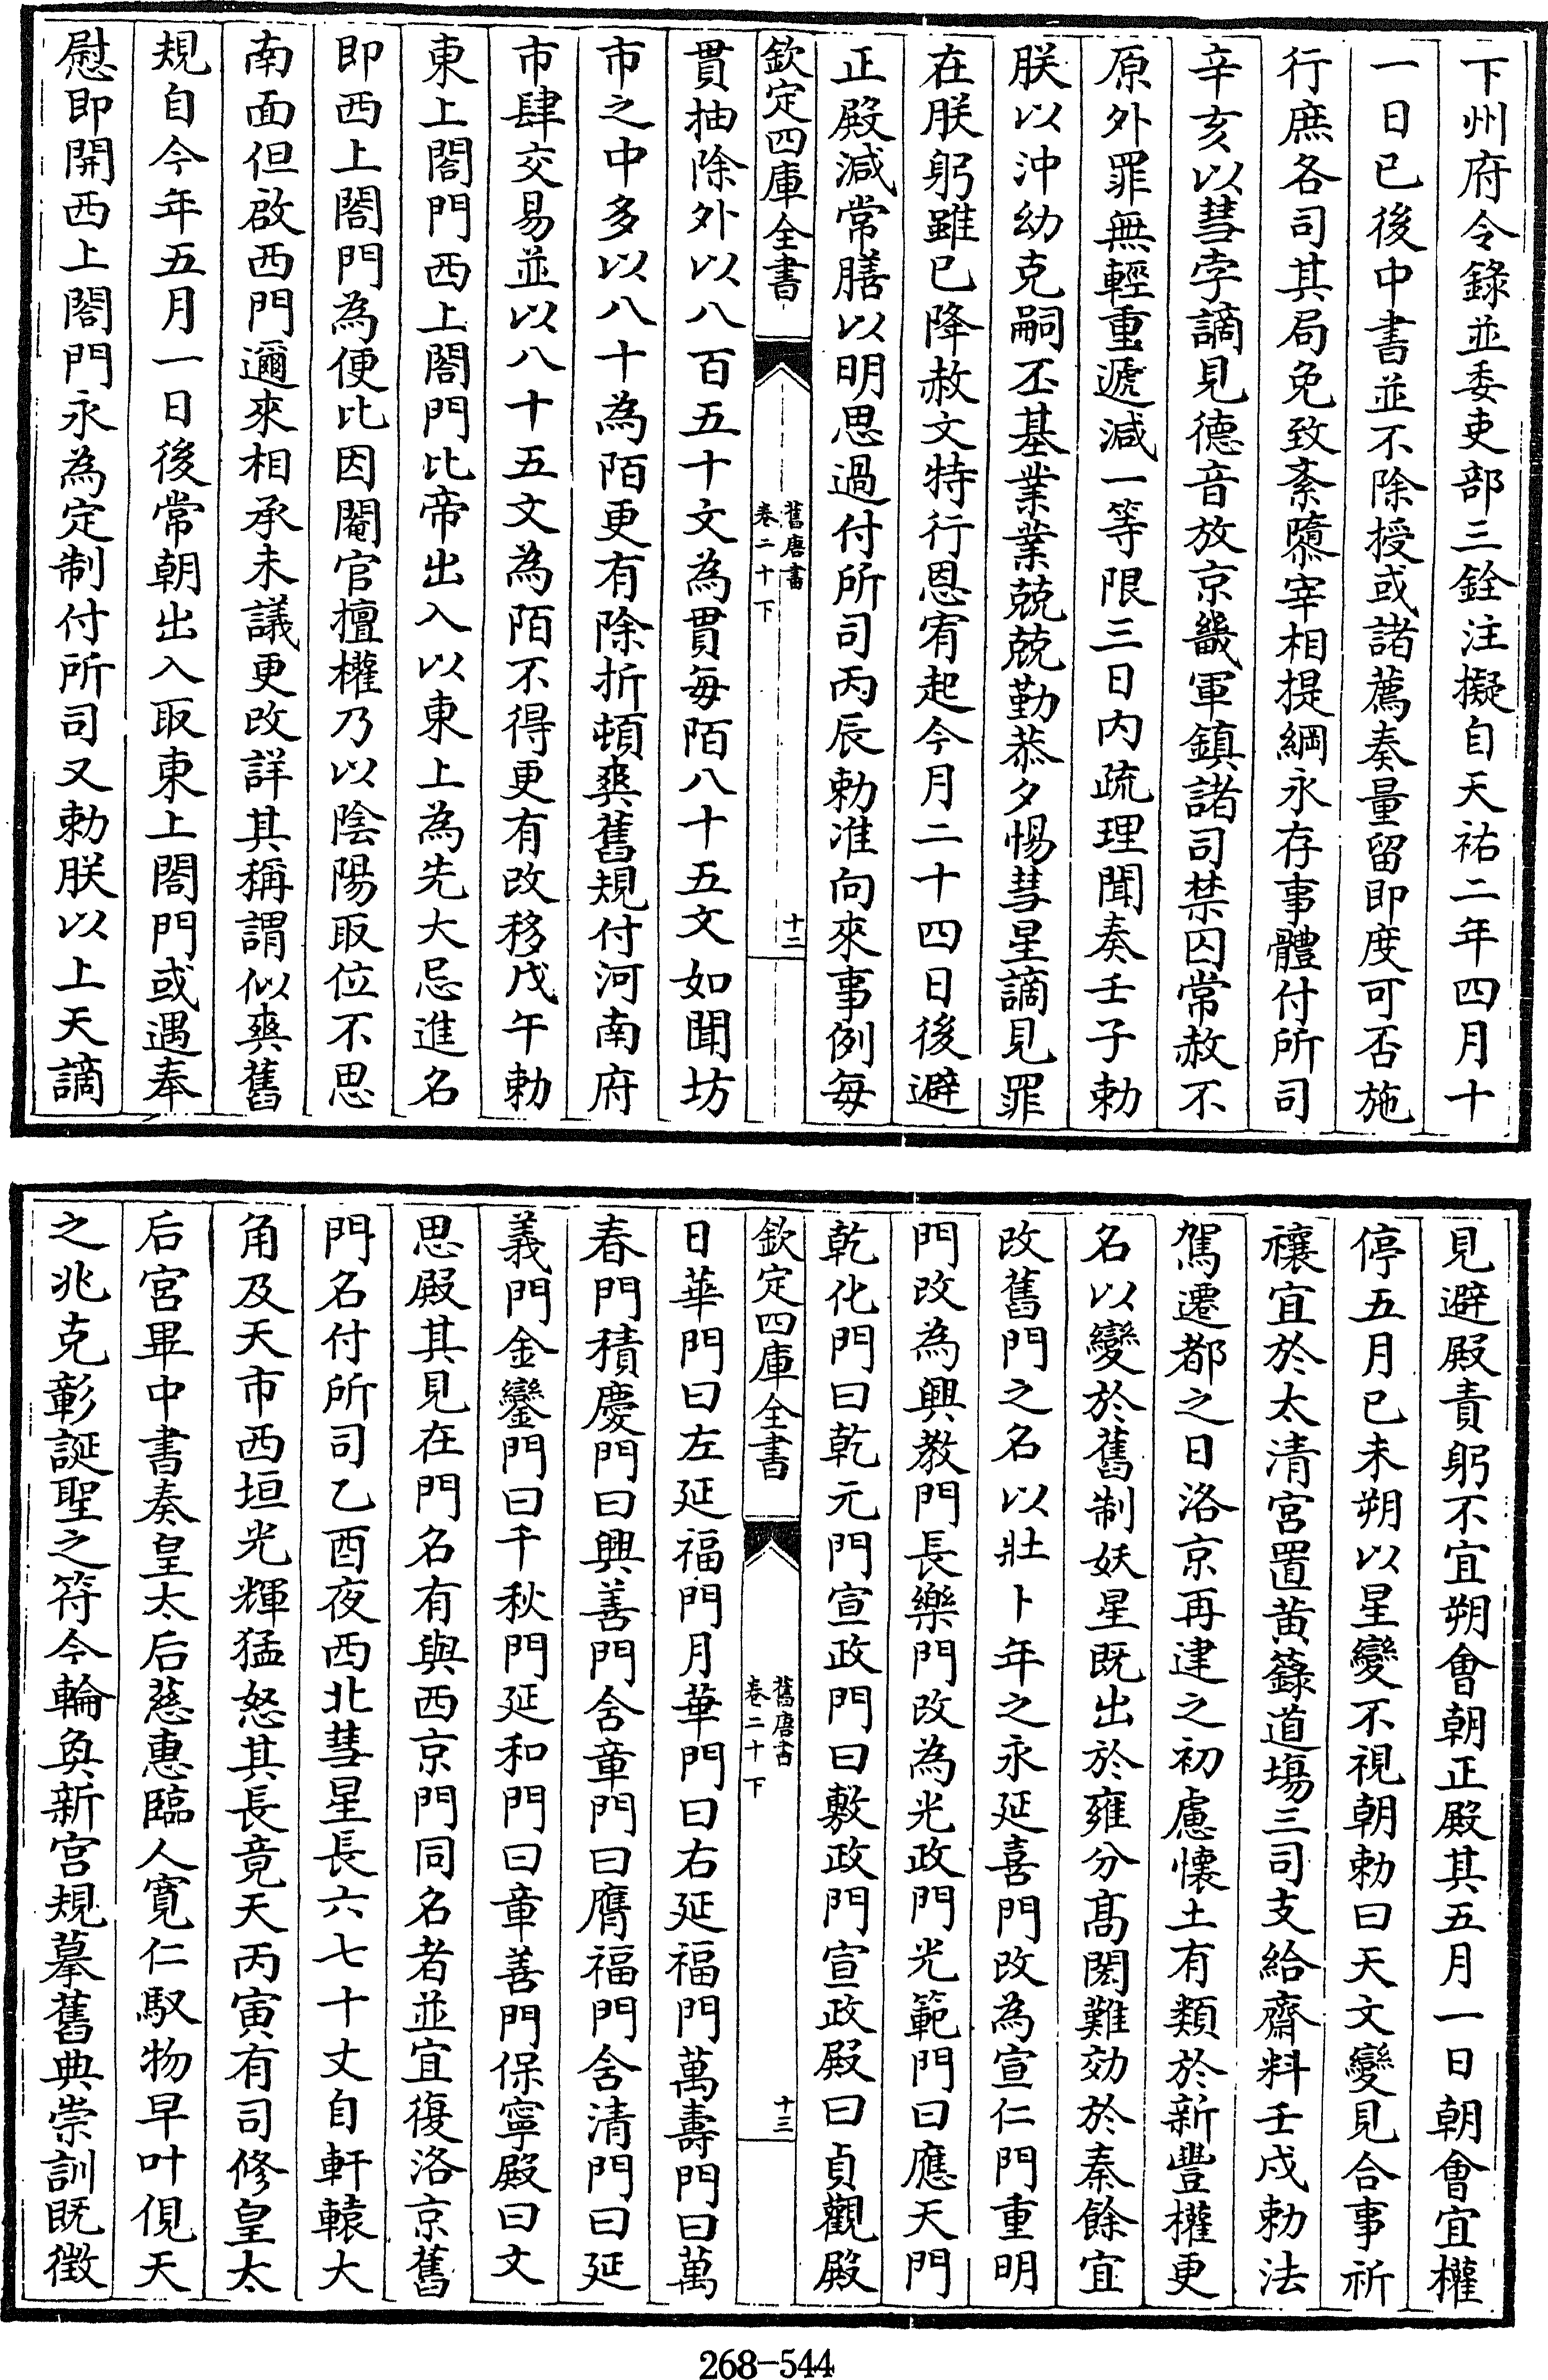 下州府令錄並委吏部三銓注擬自天祐二年四月十
一日已後中書並不除授或諸薦奏量留即度可否施
行庶各司其局免致紊隳宰相提綱永存事體付所司
辛亥以彗孛謫見德音放京畿軍鎮諸司禁囚常赦不
原外罪無輕重遞減一等限三日內疏理聞奏壬子勅
朕以沖幼克嗣丕基業業兢兢勤恭夕惕彗星謫見罪
在朕躬雖已降赦文特行恩宥起今月二十四日後避
正殿減常膳以明思過付所司丙辰勅准向來事例每
欽定四庫全書
舊唐書
卷二十下
十二
貫抽除外以八百五十文為貫每陌八十五文如聞坊
市之中多以八十為陌更有除折頓爽舊規付河南府
市肆交易並以八十五文為陌不得更有改移戊午勅
東上閤門西上閤門比帝出入以東上為先大忌進名
即西上閤門為便比因閹官擅權乃以陰陽取位不思
南面但啟西門邇來相承未議更改詳其稱謂似爽舊
規自今年五月一日後常朝出入取東上閤門或遇奉
慰即開西上閤門永為定制付所司又勅朕以上天謫
見避殿責躬不宜朔會朝正殿其五月一日朝會宜權
停五月已未朔以星變不視朝勅曰天文變見合事祈
禳宜於太清宮置黃籙道場三司支給齋料壬戌勅法
駕遷都之日洛京再建之初慮懷土有類於新豐權更
名以變於舊制妖星既出於雍分高閎難効於秦餘宜
改舊門之名以壯卜年之永延喜門改為宣仁門重明
門改為興教門長樂門改為光政門光範門曰應天門
乾化門曰乾元門宣政門曰敷政門宣政殿曰貞觀殿
欽定四庫全書
舊唐書
卷二十下
十三
日華門曰左延福門月華門曰右延福門萬壽門曰萬
春門積慶門曰興善門含章門曰膺福門含清門曰延
義門金鑾門曰千秋門延和門曰章善門保寧殿曰文
思殿其見在門名有與西京門同名者並宜復洛京舊
門名付所司乙酉夜西北彗星長六七十丈自軒轅大
角及天市西垣光輝猛怒其長竟天丙寅有司修皇太
后宮畢中書奏皇太后慈惠臨人寬仁馭物早叶俔天
之兆克彰誕聖之符今輪奐新宮規摹舊典崇訓既徵
268-544